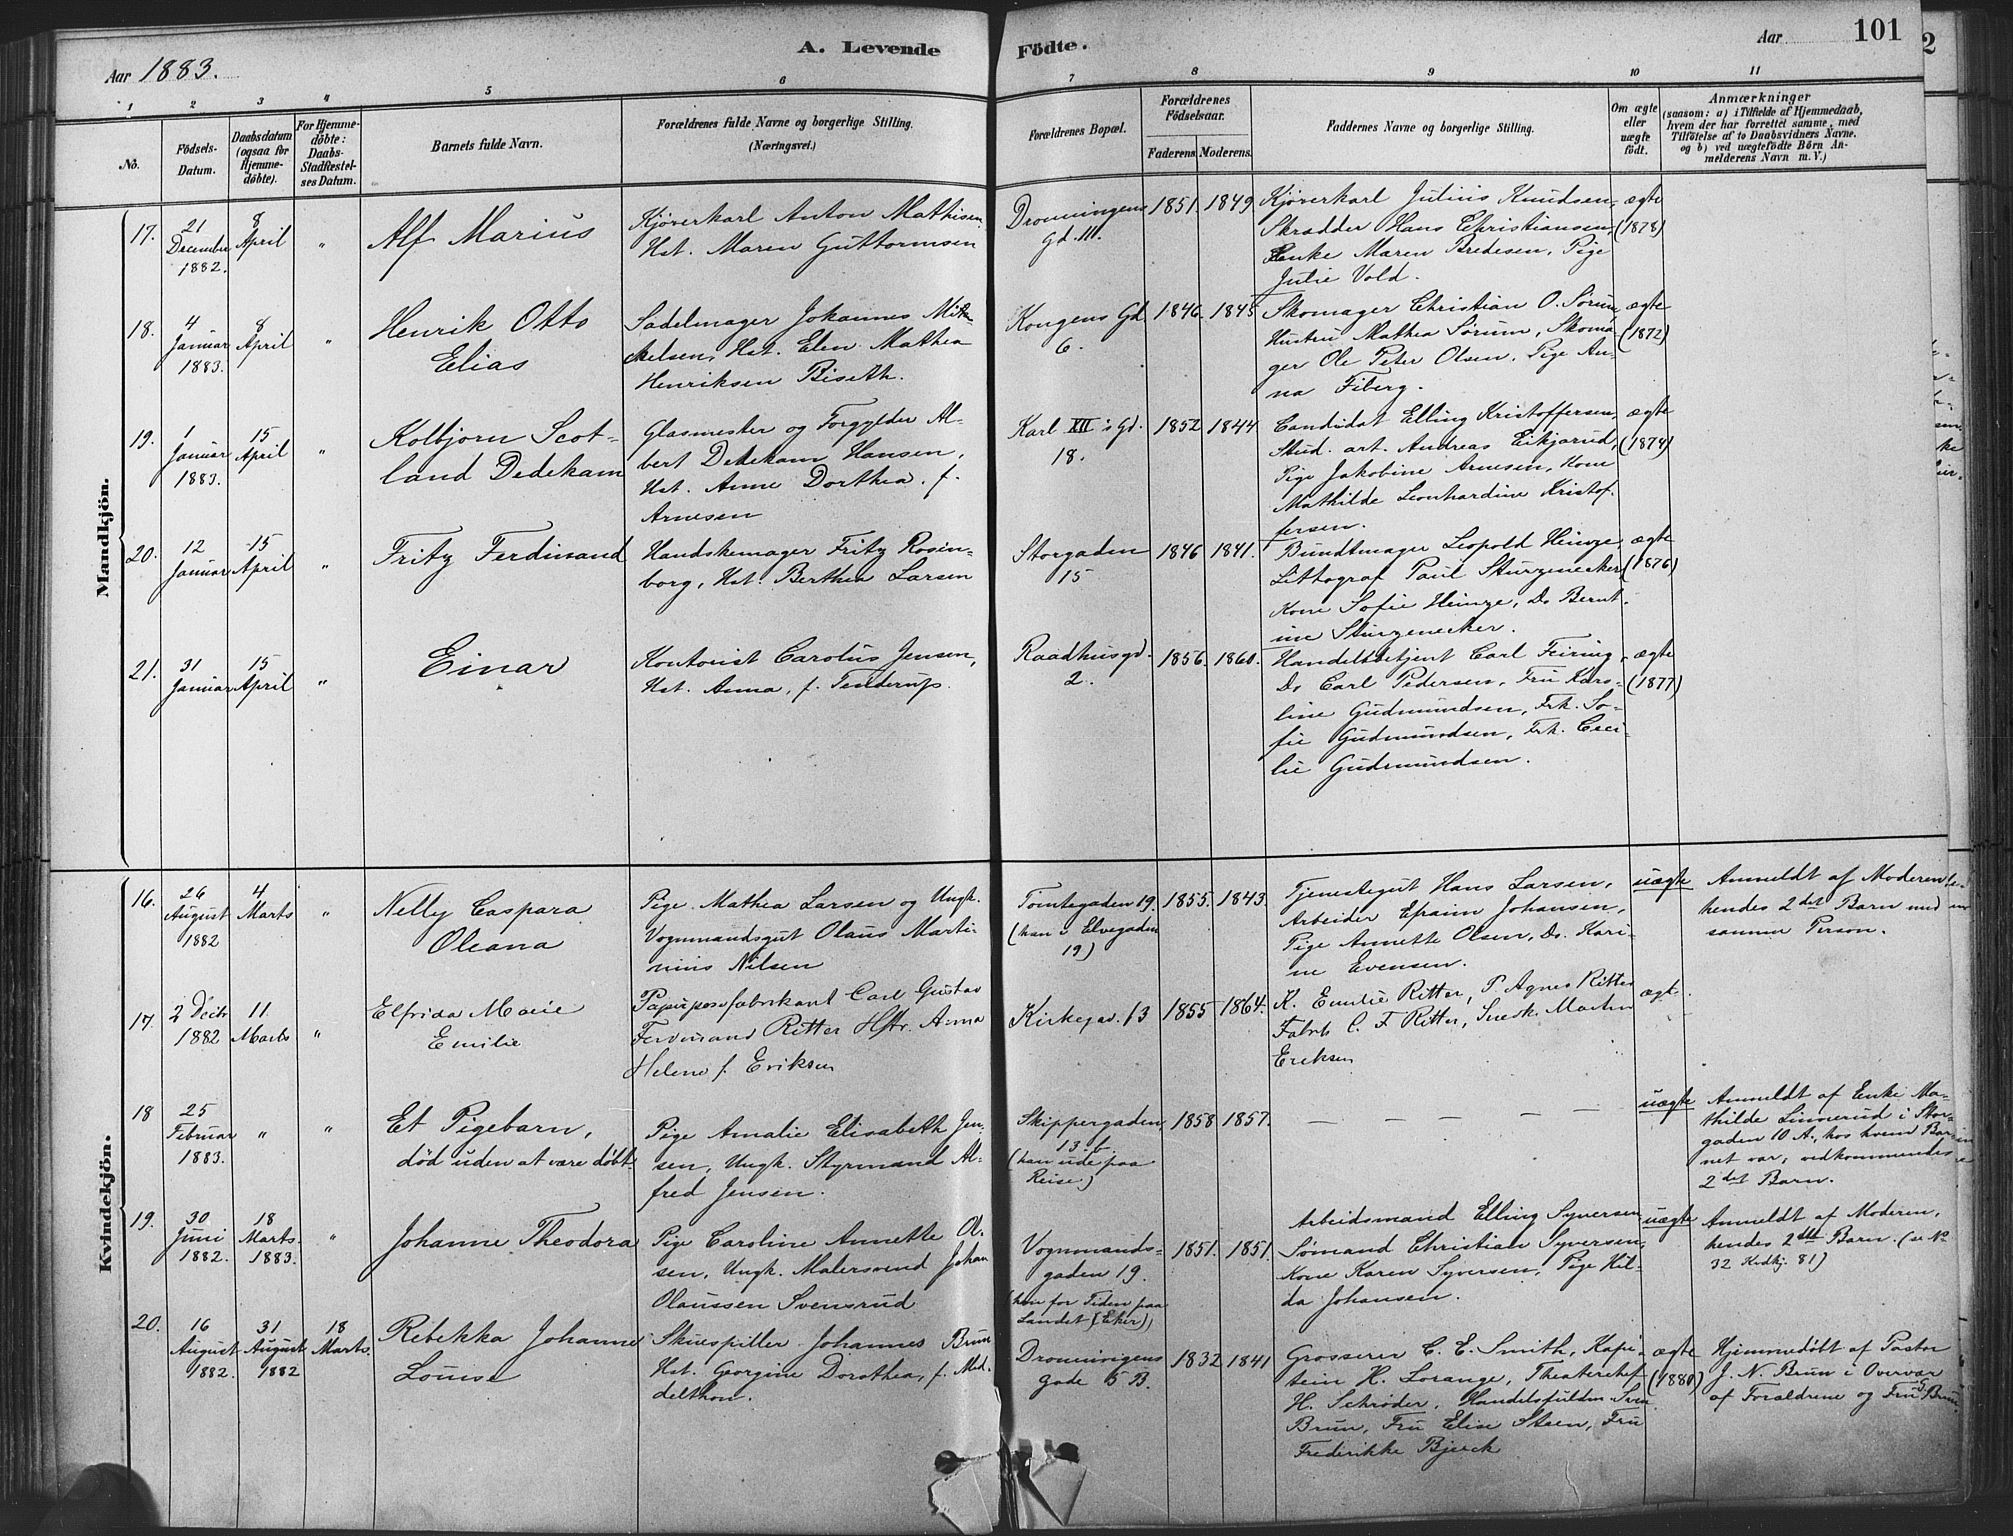 Aar 1883.
A. Levende Födte.
Aar
101
2
1 2 3 4 5 6 7 8 9 10 11
No.
Födsels-
Datum.
Daabsdatum
(ogsaa for
Hjemme-
döbte).
For Hjemme-
döbte:
Daabs-
Stadfæstel-
ses Datum.
Barnets fulde Navn.
Forældrenes fulde Navne og borgerlige Stilling.
(Næringsvei.)
Forældrenes Bopæl.
Forældrenes
Födselsaar.
Faderens. Moderens.
Faddernes Navne og borgerlige Stilling.
Om ægte
eller
uægte
födt.
Anmærkninger
(saasom: a) i Tilfælde af Hjemmedaab,
hvem der har forrettet samme, med
Tilföielse af to Daabsvidners Navne,
og b) ved uægtefödte Börn An-
melderens Navn m. V.)
Mandkjön.
17.
21
December
1882.
8
April
"
Alf Marius
Kjørerkarl Anton Mathisen
Hst. Maren Guttormsen
Dronningens
Gd. 111.
1851. 1849.
Kjørerkarl Julius Knudsen,
Skrædder Hans Christiansen,
Enke Maren Bredesen, Pige
Julie Vold.
ægte
(1878)
18.
4
Januar
1883.
8
April
"
Henrik Otto
Elias
Sadelmager Johannes Mik-
kelsen, Hst. Elen Mathea
Henriksen Biseth.
Kongens Gd
6.
1846. 1845
Skomager Christian O. Sørum,
Hustru Mathea Sørum, Skoma-
ger Ole Peter Olsen, Pige An-
na Fiberg.
ægte
(1872)
19.
1
Januar
1883.
15
April
"
Kolbjørn Scot-
land Dedekam
Glasmester og Forgylder Al-
bert Dedekam Hansen,
Hst. Anne Dorthea, f.
Arnesen
Karl XII's Gd.
18.
1852 1844
Candidat Elling Kristoffersen,
Stud. art. Andreas Eikjarud,
Pige Jakobine Arnesen, Kone
Mathilde Leonhardine Kristof-
fersen.
ægte
(1874)
20.
12
Januar
15
April
"
Fritz Ferdinand
Handskemager Fritz Rosin-
borg, Hst. Berthea Larsen
Storgaden
15
1846 1841.
Bundtmager Leopold Heinze,
Littograf Paul Sturzenecker,
Kone Sofie Heinze, Do Bernt-
ine Sturzenecker.
ægte
(1876)
21.
31
Januar
15
April
"
Einar
Kontorist Carolus Jensen,
Hst. Anna, f. Tenderup.
Raadhusgd.
2.
1856. 1860.
Handelsbetjent Carl Feiring,
Do Carl Pedersen, Fru Karo-
line Gudmundsen, Frk. So-
fie Gudmundsen, Frk. Ceci-
lie Gudmundsen.
ægte
(1877)
Kvindekjön.
16.
26
August
1882
4
Marts
"
Nelly Caspara
Oleana
Pige Mathea Larsen og Ungk.
Vognmandsgut Olaus Marti-
nius Nilsen
Tomtegaden 19.
(han i Elvegaden
19)
1855. 1843.
Tjenestegut Hans Larsen,
Arbeider Efraim Johansen,
Pige Annette Olsen, Do. Kari-
ne Evensen.
uægte
Anmeldt af Moderen
hendes 2det Barn med
samme Person.
17.
2 Decbr
1882
11.
Marts
"
Elfrida Marie
Emilie
Papirposefabrikant Carl Gustav
Ferdinand Ritter Hstr. Anna
Helene f. Eriksen
Kirkegd. 13
1855 1864.
K. Emilie Ritter, P. Agnes Ritter
Fabrk C. F Ritter, Snedk. Morten
Ereksen
ægt.
18
25
Februar
1883.
"
"
Et Pigebarn,
død uden at være døbt
Pige Amalie Elisabeth Jen-
sen, Ungk. Styrmand Al-
fred Jensen.
Skippergaden
13. b.
(han ude paa
Reise.)
1858 1857.
— — — — —
uægte
Anmeldt af Enke Ma-
thilde Linnerud i Stor-
gaden 10 A., hos hvem Bar-
net var, vedkommendes
2det Barn.
19.
30
Juni
1882.
18
Marts
1883.
"
Johanne Theodora
Pige Caroline Annette Ol-
sen, Ungk. Malersvend Johan
Olaussen Svensrud
Vognmands-
gaden 19.
(han for Tiden paa
Landet (Eker))
1851. 1851.
Arbeidsmand Elling Syversen,
Sømand Christian Syversen,
Kone Karen Syversen, Pige Hil-
da Johansen.
uægte
Anmeldt af Moderen,
hendes 2det Barn. (se No
32 Kvdkj. 81)
20.
16
August
1882.
31
August
1882
18
Marts.
Rebekka Johanne
Louise
Skuespiller Johannes Brun
Hst. Georgine Dorothea, f. Mid-
delthon.
Dronningens
gade 5 B.
1832 1841
Grosserer C. E. Smith, Kapi-
tein H. Lorange, Theaterchef
H. Schrøder, Handelsfuldm. Sven
Brun, Fru Elise Steen, Fru
Frederikke Bjerck
ægte
(1880)
Hjemmedøbt af Pastor
J. N. Brun i Overvær
af Forældrene og Fru Brun.